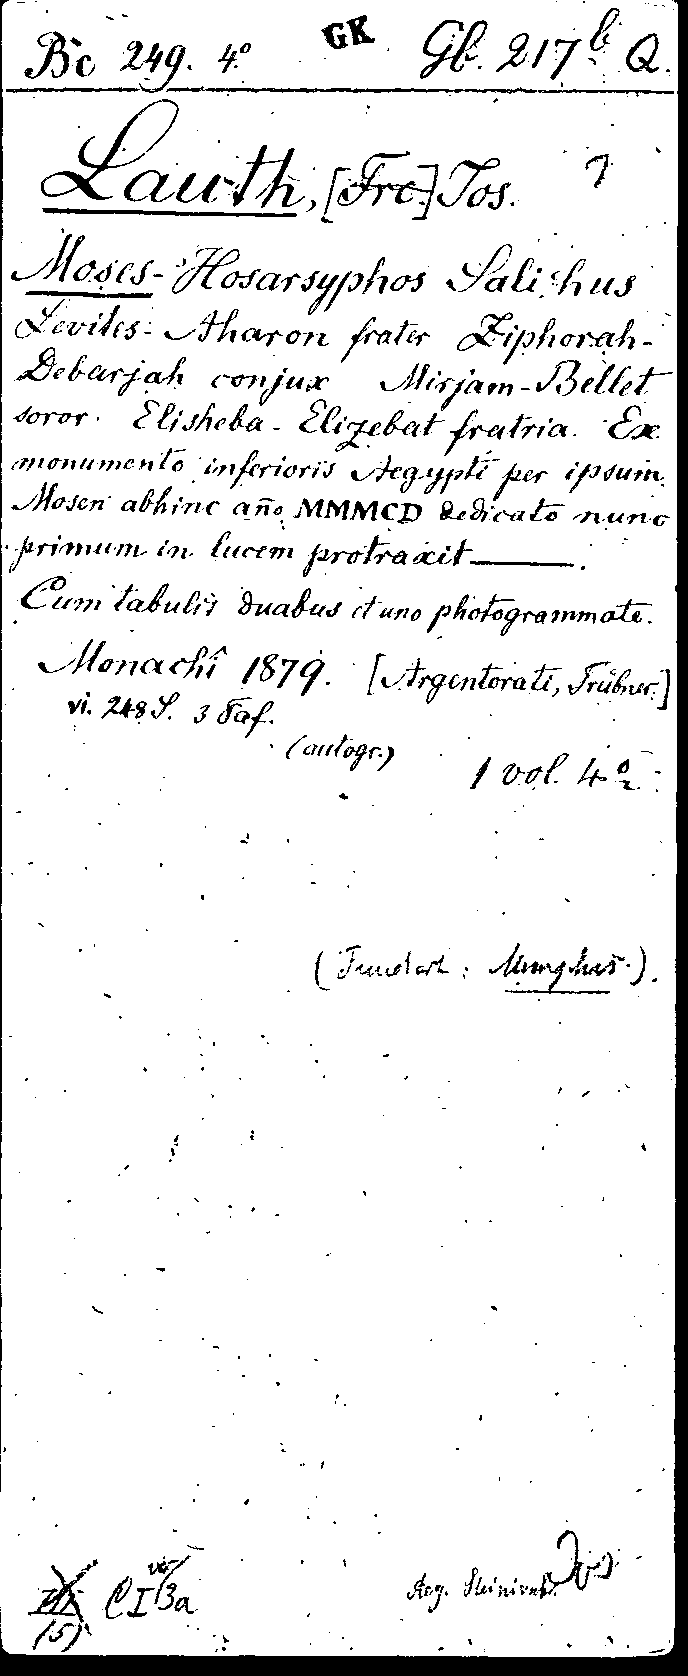 Bc 249. 4° GK Gb. 217 b Q.
Lauth, [Frc.] Jos.
Moses-Hosarsyphos Salichus
Levites- Aharon frater Ziphorah-
Debarjah conjux Mirjam-Bellet
soror. Elisheba-Elizebat fratria. Ex
monumento inferioris Aegypti per ipsum
Mosen abhinc año MMMCD dedicato nunc
primum in lucem protraxit ———.
Cum tabulis duabus et uno photogrammate.
Monachî 1879. [Argentorati, Trübner.]
vi. 248 S. 3 Taf.
(autogr.)
1 vol. 4°
(Fundort:
CI 3a
(5)